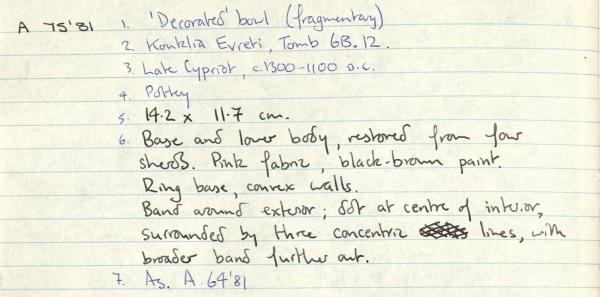 A 75'81 1. 'Decorated' bowl (fragmentary)
2. Kouklia Evreti, Tomb 6B.12.
3. Late Cypriot, c.1300-1100 B.C.
4. Pottery
5. 14.2 x 11.7 cm.
6. Base and lower body, restored from four
sherds. Pink fabric, black-brown paint.
Ring base, convex walls.
Band around exterior; dot at centre of interior,
surrounded by three concentric lines, with
broader band further out.
7. As. A 64'81